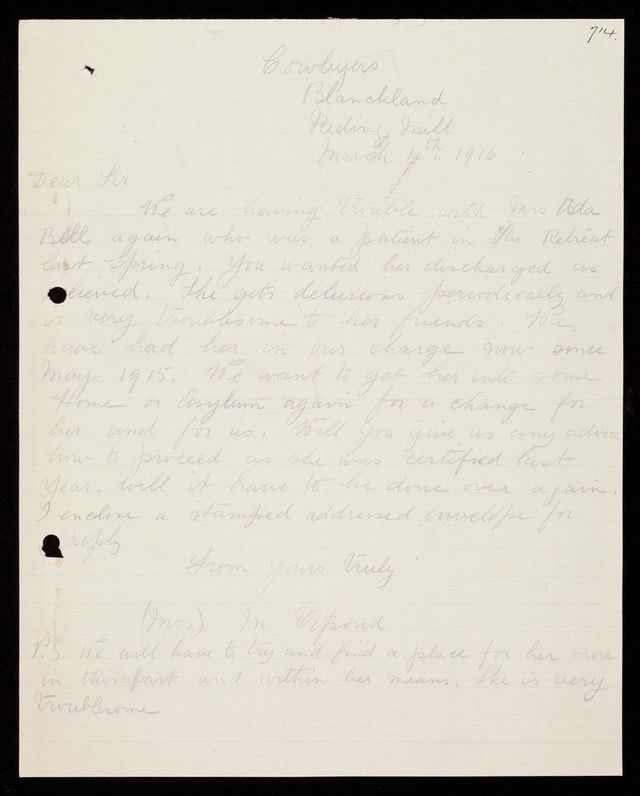 714.
Cowbyers
Blanchland
Riding Mill
March 4th. 1916
Dear Sir
We are having trouble with Mrs Ada
Bell again who was a patient in The Retreat
last Spring. You wanted her discharged as
relieved. She gets delusions periodically and
is very troublesome to her friends. We
have had her in our charge now since
May 1915. We want to get her into some
Home or Asylum again for a change for
her and for us. Will you give us any advice
how to proceed as she was certified last
Year, will it have to be done over again.
I enclose a stamped addressed envelope for
reply
From Yours Truly
(Mrs) M Vipond
P.S. We will have to try and find a place for her more
in this part and within her means. She is very
troublesome